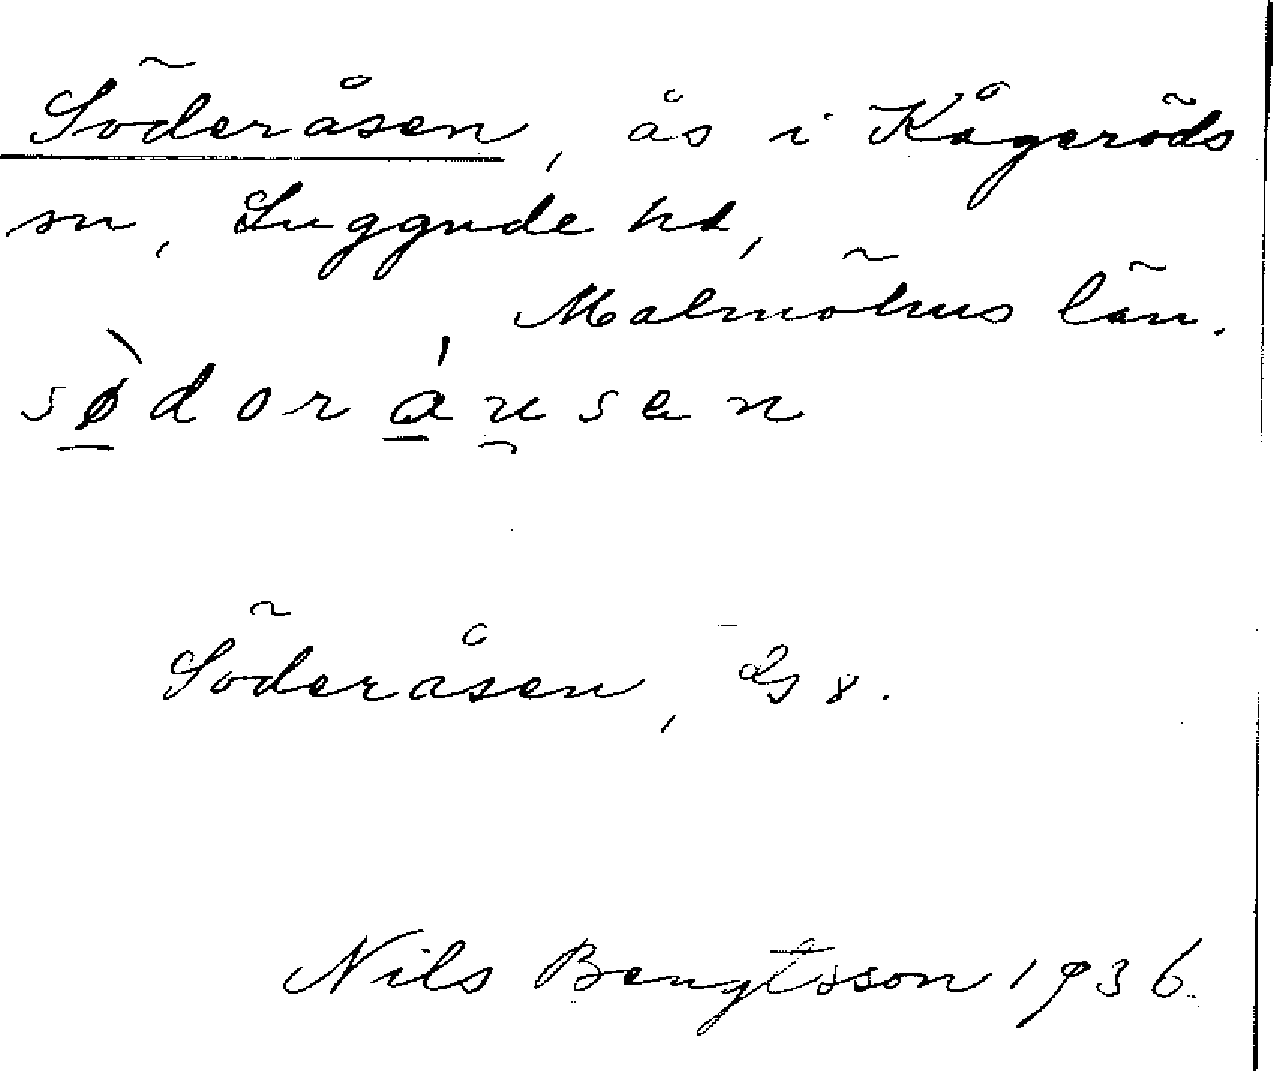 Söderåsen, ås i Kågeröds
sn, Luggude hd,
Malmöhus län.
sø̀doráu̯sen
Söderåsen, GS 8.
Nils Bengtsson 1936.